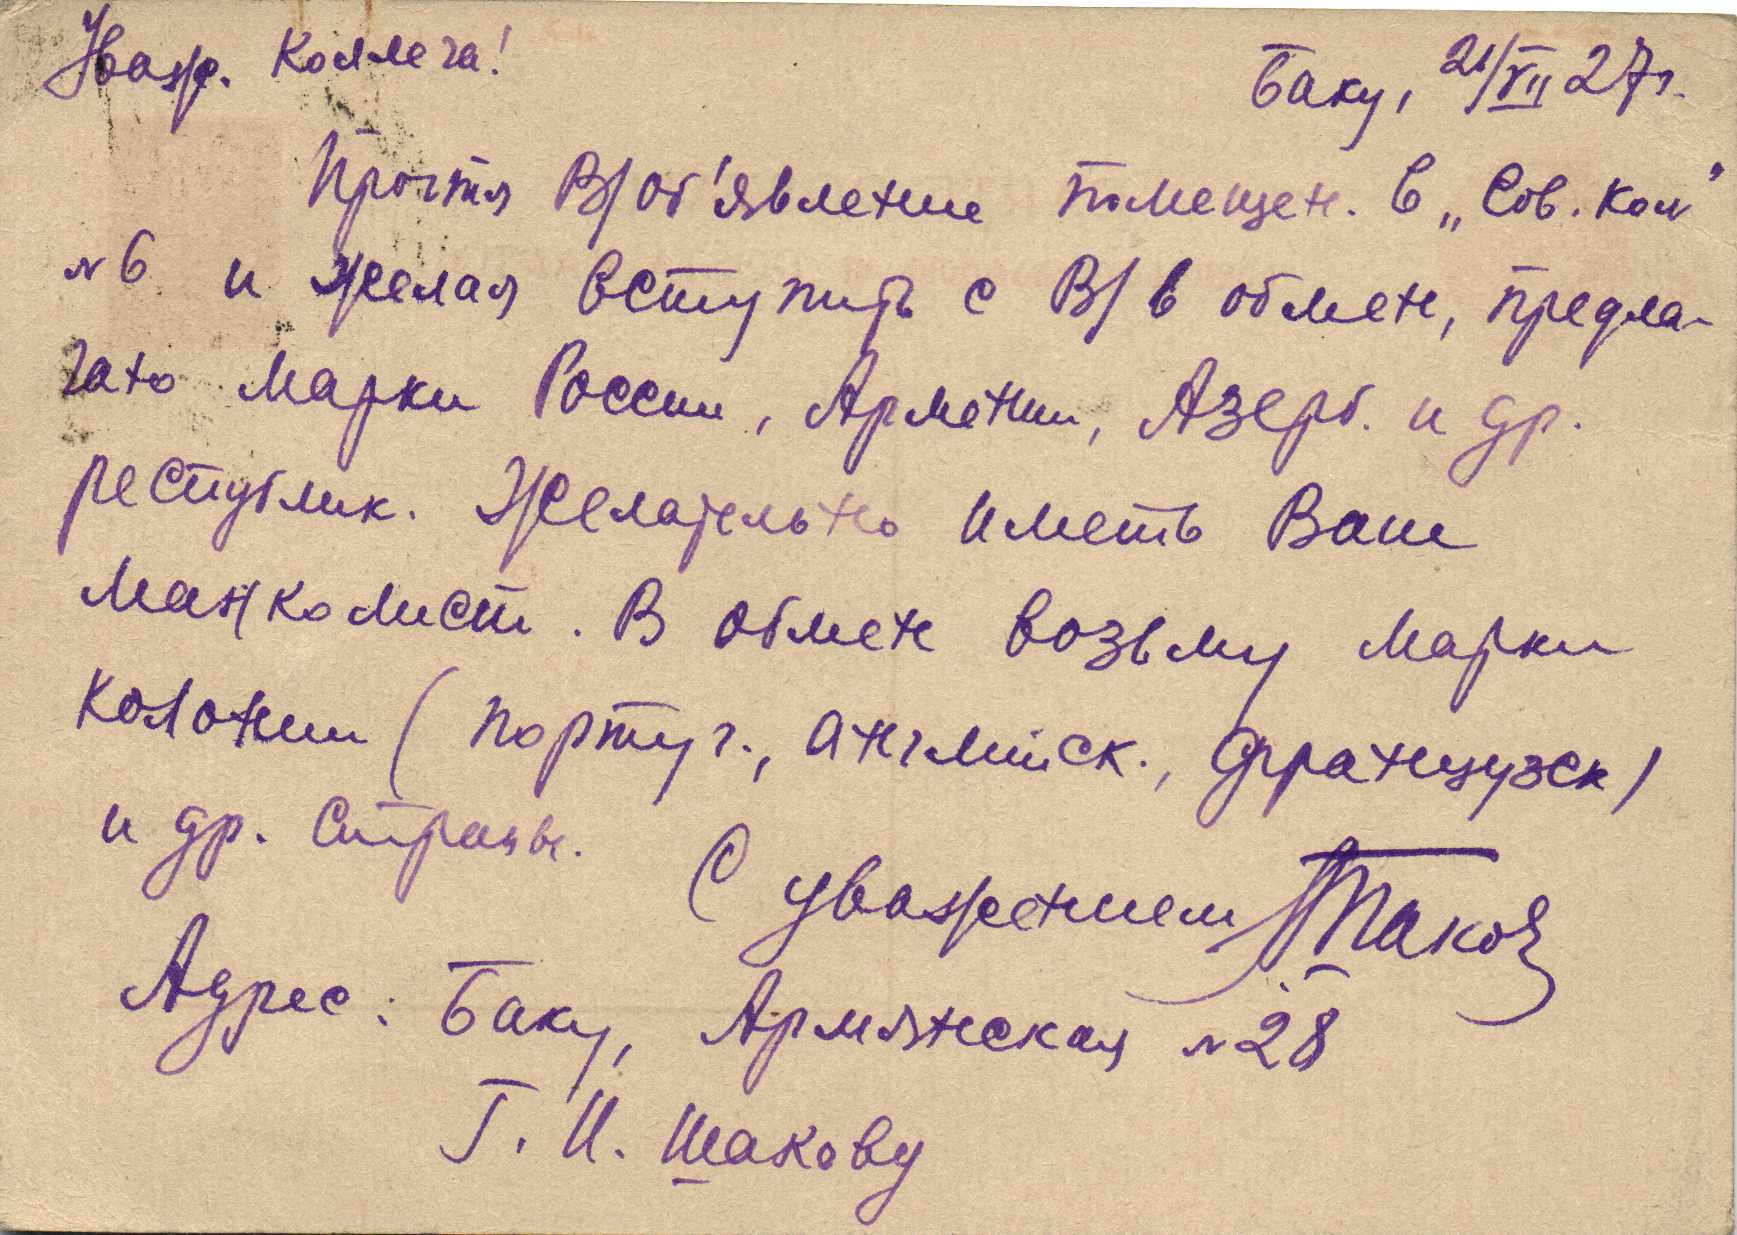 Уваж. Коллега!
Баку, 21/VII 27 г.
Прочтя В/об'явление помещен. в „Сов. Кол"
№ 6 и желая вступить с В/ в обмен, предла-
гаю марки России, Армении, Азерб. и др.
республик. Желательно иметь Ваш
манколист. В обмен возьму марки
колонии (португ., английск., французск)
и др. страны.
С уважением
Адрес: Баку, Армянская № 28
Г. И. Шакову